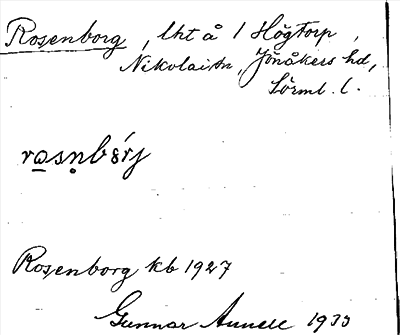 Rosenborg, lht å 1 Högtorp,
Nikolai sn, Jönåkers hd,
Sörml. l.
Rosenborg kb 1927
Gunnar 1935